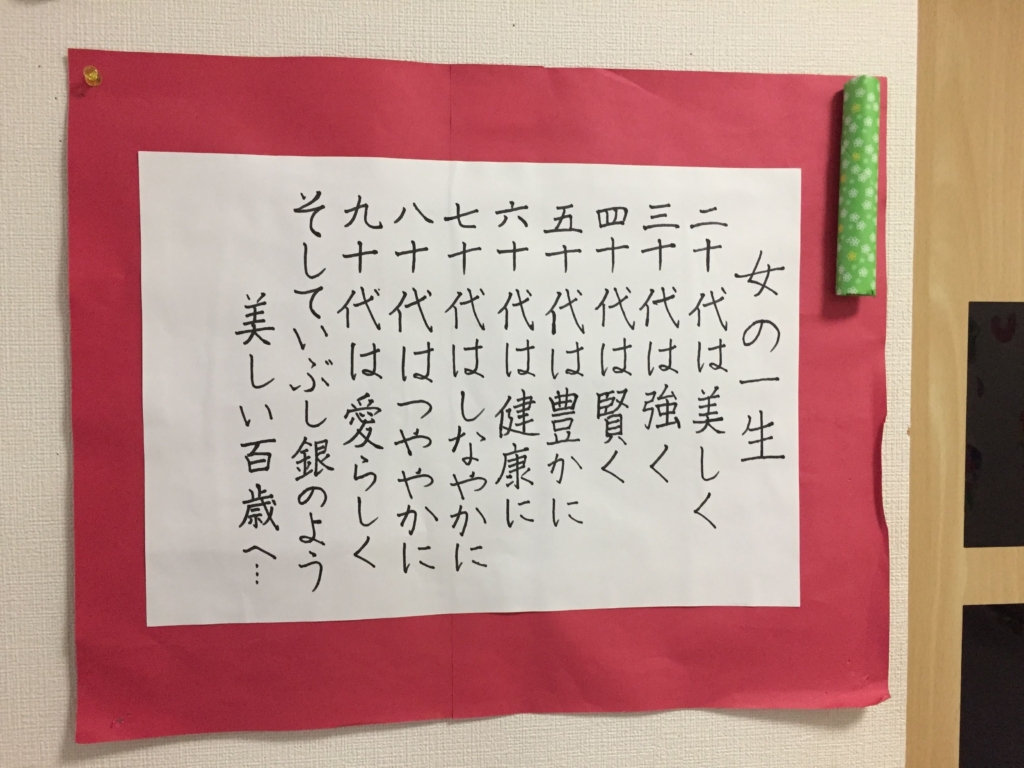 女の一生
二十代は美しく
三十代は強く
四十代は賢く
五十代は豊かに
六十代は健康に
七十代はしなやかに
八十代はつややかに
九十代は愛らしく
そしていぶし銀のよう
美しい百歳へ…